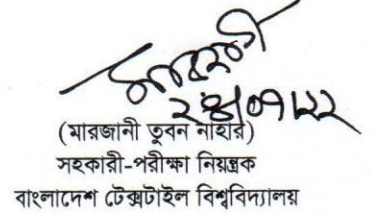 (মারজানী ভুবন নাহার)
সহকারী-পরীক্ষা নিয়ন্ত্রক
বাংলাদেশ টেক্সটাইল বিশ্ববিদ্যালয়